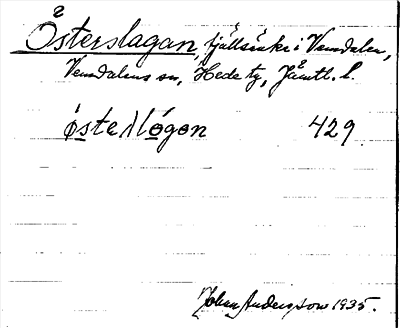 Österslagan, fjällsänka i Vemdalen,
Vemdalens sn, Hede tg, Jämtl. l.
östeɹlǫ́gɑn 429
Johan Andersson 1935.